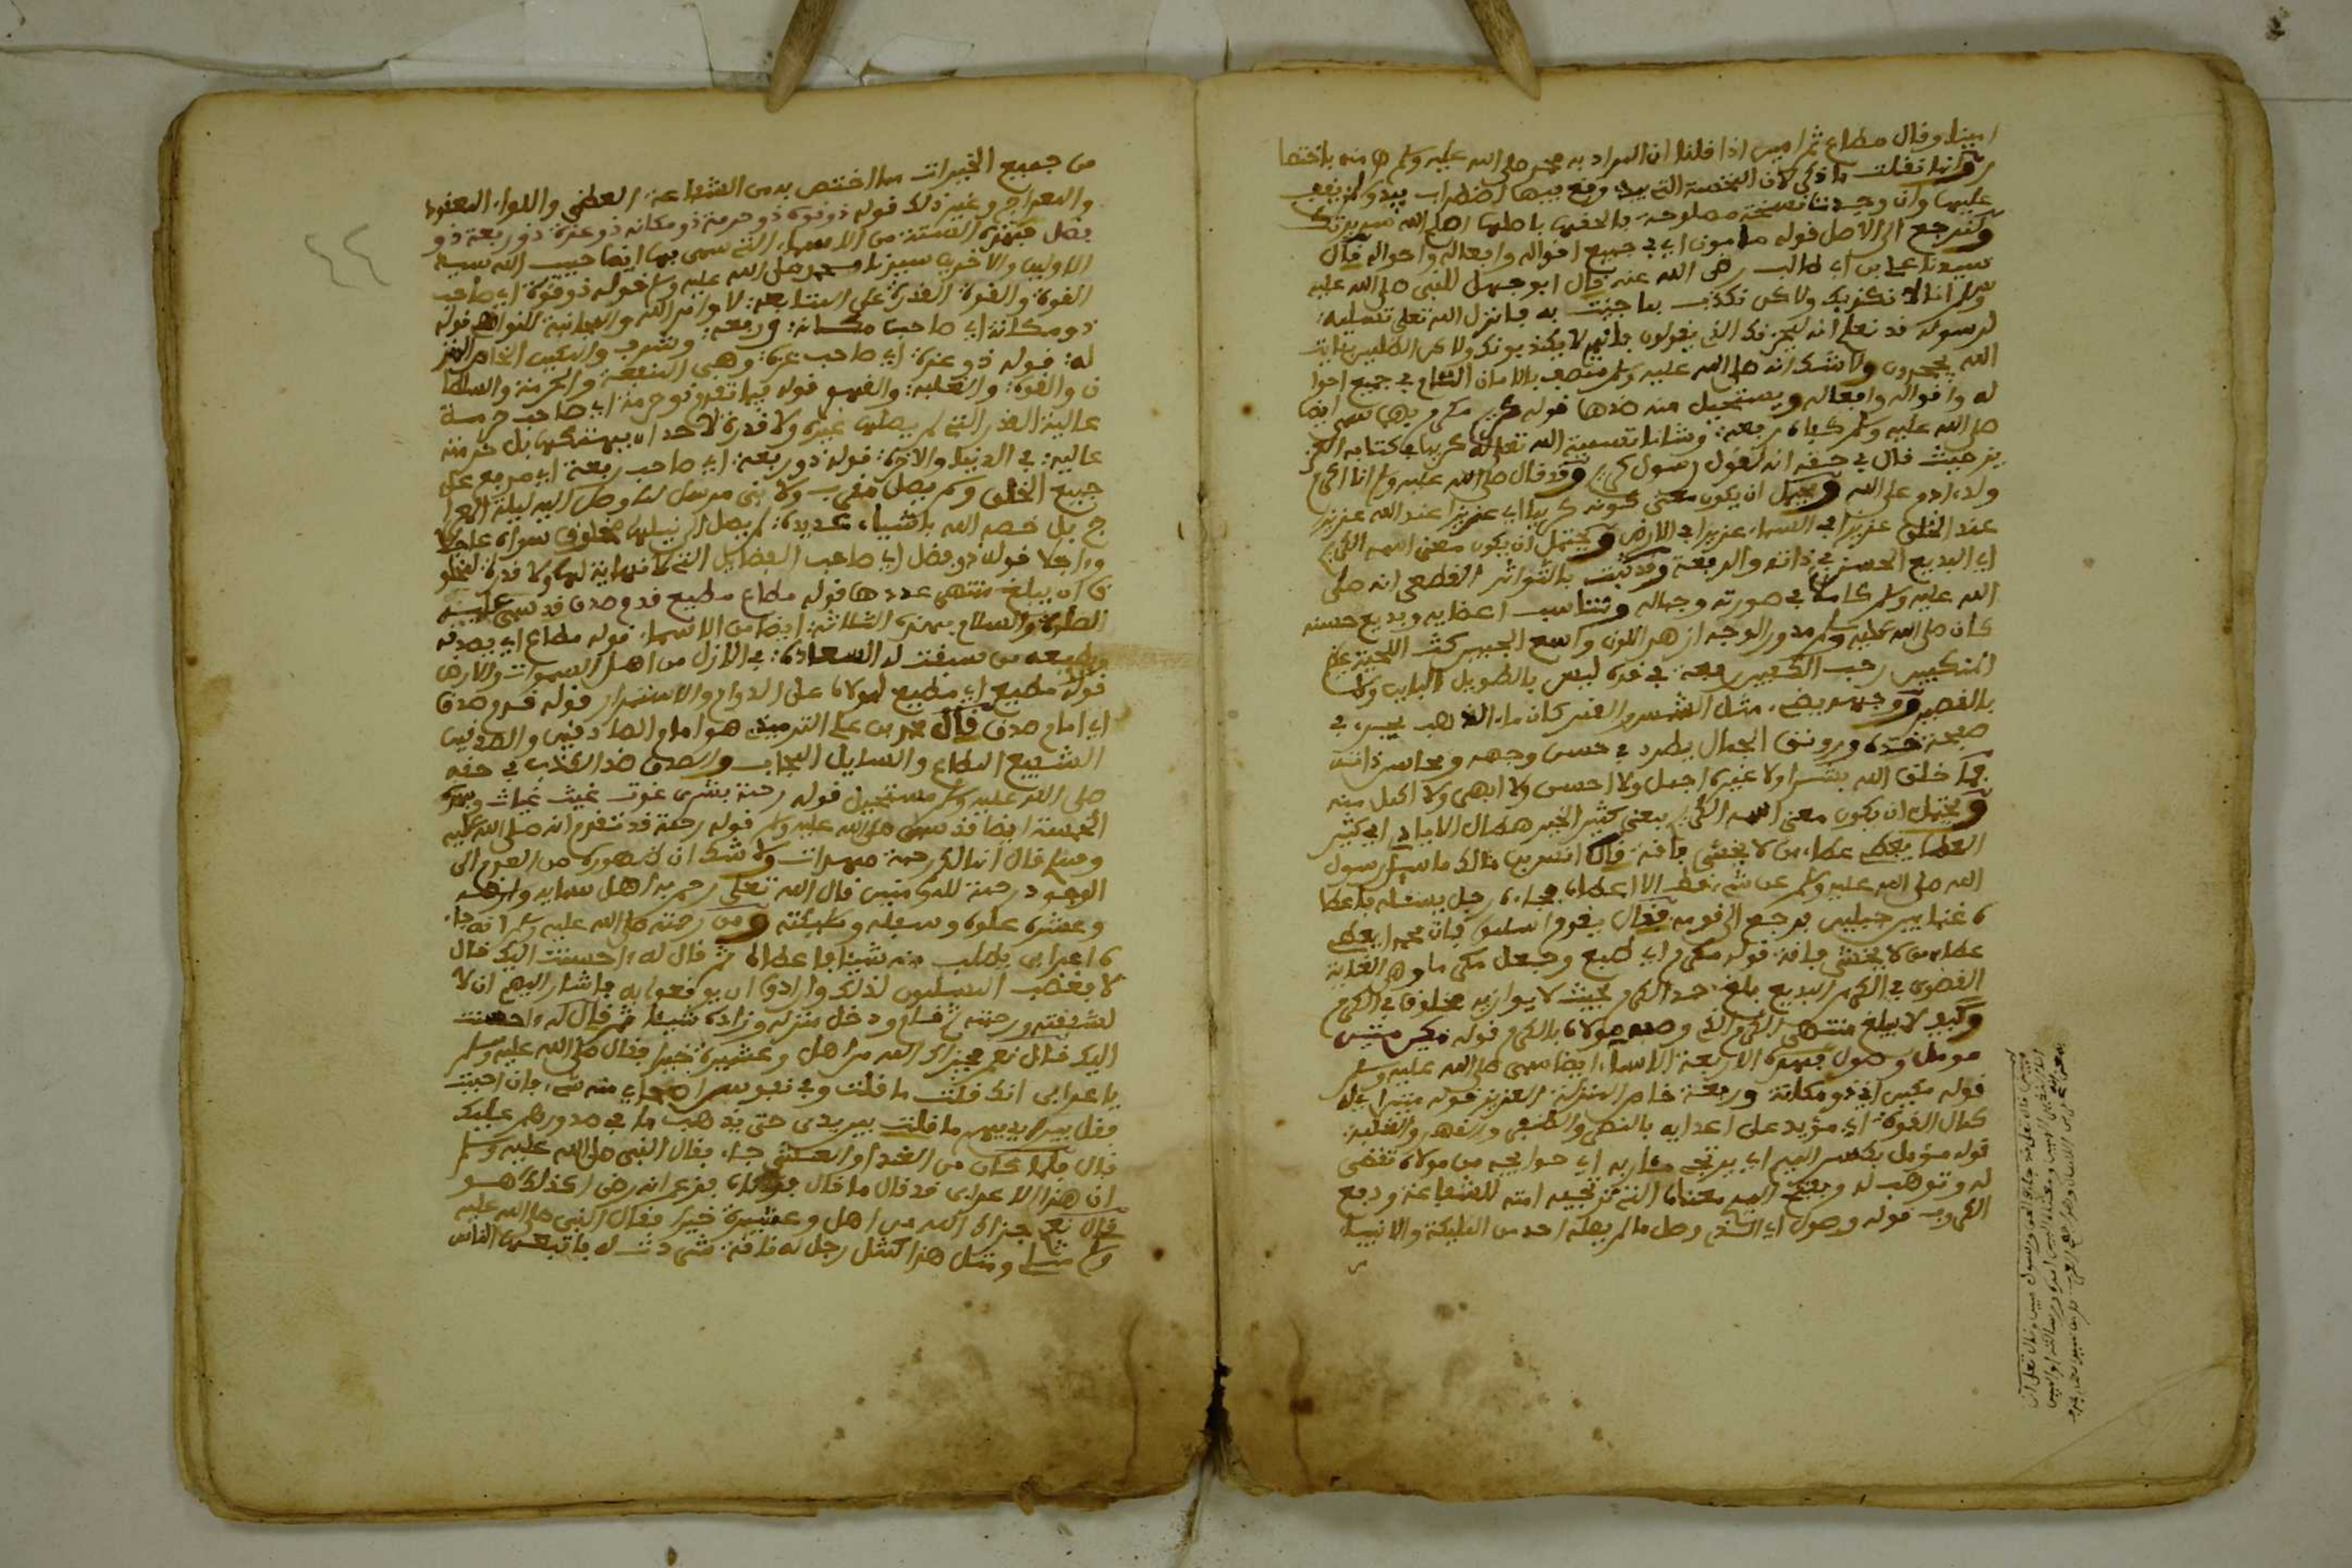 امينا وقال مطاع ثم امين اذا قلنا ان المراد به محمد صلى الله عليه وسلم هامنه باختصا
ر وانما نقلت ما ذكر لان النسخة التي بيد وقع فيها اضطراب
عليها وان وجدت نسخة مصلوحة بالحقها باصلها
ولنرجع الى الاصل قوله مامون اي في جميع اقواله وافعاله واحواله قال
سيدنا علي بن ابي طالب رضي الله عنه قال ابو جهل للنبي صلى الله عليه
وسلم انا لا نكذبك ولاكن نكذب بما جئت به فانزل الله تعلى تسلية
لرسوله قد نعلم انه ليحزنك الذي يقولون فانهم لا يكذبونك ولاكن الظلمين بئايت
الله يجحدون ولا شك انه صلى الله عليه وسلم متصف بالامان التام في جميع احوا
له واقواله وافعاله ويستحيل منه ضدها قوله كريم مكرم بها سمى ايضا
صلى الله عليه وسلم رفعة وشانا تسمية الله تعلى له كريما في كتابه العز
يز حيث قال في حقه انه لقول رسول كريم وقد قال صلى الله عليه وسلم انا اكرم
ولد ادم على الله ويحتمل ان يكون معنى كونه كريما اي عزيزا عند الله عزيزا
عند الخلق عزيزا في السماء عزيزا في الارض ويحتمل ان يكون معنى اسمه الكريم
اي البديع الحسن في ذاته والرفعة وقد ثبت بالتواتر القطعي انه صلى
الله عليه وسلم كاملا في صورته وجماله وتناسب اعضايه وبديع حسنه
كان صلى الله عليه وسلم مدور الوجه ازهر اللون واسع الجبين كث اللحية عظيم
المنكبين رحب الكفين ربعة في قده ليس بالطويل الباين ولا
بالقصير ووجهه يضيء مثل الشمس والقمر كان ماء الذهب يجري في
صفحة خده ورونق الجمال يطرد في حسن وجهه ومحاسن ذاته
فما خلق الله بشرا ولا غيره اجمل ولا احسن ولا ابهى ولا اكمل منه
ويحتمل ان يكون معنى اسمه الكريم يعني كثير الخير هطال الايادي اي كثير
العطاء يعطي عطاء من لا يخشى فاقة قال انس بن مالك ما سيل رسول
الله صلى الله عليه وسلم عن شيء قط الا اعطاه فجاءه رجل يسئله فاعطا
ه غنما بين جبلين فرجع الى قومه فقال يقوم اسلموا فان محمدا يعطي
عطاء من لا يخشى فاقة قوله مكرم اي طبع وجعل مكرما وهو الغاية
القصوى في الكرم البديع بلغ حد الكرم بحيث لا يوازيه مخلوق في الكرم
وكيف لا يبلغ منتهى الكرم الذي وصفه مولاه بالكرم قوله مكين متين
مومل وصول فبهذه الاربعة الاسماء ايضا سمى صلى الله عليه وسلم
قوله مكين اي ذو مكانة ورفعة خاص المنزلة العزيز قوله متين اي له
كمال القوة اي مؤيد على اعدايه بالنصر والظفر والقهر والغلبة
قوله مؤمل بكسر الميم اي يرتجي مئاربه اي حوايجه من مولاه تقضى
له وتوهب له وبفتح الميم معناه الذي ترتجيه امته للشفاعة ودفع
الكروب قوله وصول اي الذي وصل ما لم يصله احد من المليكة والانبياء
من جميع الخيرات مما اختص به من الشفاعة العظمى واللواء المعقود
والمعراج وغير ذلك قوله ذو قوة ذو حرمة ذو مكانة ذو عزة ذو رفعة ذو
فضل فبهذه الستة من الاسماء التي سمى بها ايضا حبيب الله سيد
الاولين والاخرين سيدنا محمد صلى الله عليه وسلم قوله ذو قوة اي صاحب
القوة والقوة القدرة على المتابعة لاوامر الله والمجانبة لنواهيه قوله
ذو مكانة اي صاحب مكانة ورفعة وشرف والتمكين الخاص الذي
له قوله ذو عزة اي صاحب عزة وهي المنعة والحرمة والسلطا
ن والقوة والغلبة والقهر قوله فيما تقدم ذو حرمة اي صاحب حرمة
عالية القدر التي لم يصلها غيره ولا قدرة لاحد ان ينتهكها بل حرمته
عالية في الدنيا والاخرة قوله ذو رفعة اي صاحب رفعة اي مرفع على
جميع الخلق ولم يصل مقرب ولا نبي مرسل لما وصل اليه ليلة المعرا
ج بل خصه الله باشياء عديدة لم يصل الى نيلها مخلوق سواه عاجلا
وءاجلا قوله ذو فضل اي صاحب الفضايل التي لا نهاية لها ولا قدرة لمخلو
ق ان يبلغ منتهى عددها قوله مطاع مطيع قدم صدق قد سمى عليه
الصلوة والسلام بهذه الثلاثة ايضا من الاسماء قوله مطاع اي يصدقه
ويطيعه من سبقت له السعادة في الازل من اهل السموات والارض
قوله مطيع اي مطيع لمولاه على الدوام والاستمرار قوله قدم صدق
اي امام صدق قال محمد بن علي الترمذي هو امام الصادقين والصديقين
الشفيع المطاع والسايل المجاب والصدق ضد الكذب في حقه
صلى الله عليه وسلم مستحيل قوله رحمة بشرى غوث غيث غياث وبهذه
الخمسة ايضا قد سمى صلى الله عليه وسلم قوله رحمة قد تقدم انه صلى الله عليه
وسلم قال انا لكم رحمة مهدات ولا شك ان ظهوره من العدم الى
الوجود رحمة للمومنين قال الله تعلى رحم به اهل سمايه وارضه
وعرشه علوه وسفله ومليكته ومن رحمته صلى الله عليه وسلم انه جاء
ه اعرابي يطلب منه شيئا فاعطاه ثم قال له ءاحسنت اليك قال
لا فغضب المسلمون لذلك وارادوا ان يوقعوا به فاشار اليهم ان لا
لشفقته ورحمته ثم قام ودخل منزله وزاده شيئا ثم قال له ءاحسنت
اليك قال نعم فجزاك الله من اهل وعشيرة خيرا فقال صلى الله عليه وسلم
يا عرابي انك قلت ما قلت وفي نفوس اصحابي منه شيء فان احببت
فقل بين ايديهم ما قلت بين يدي حتى يذهب ما في صدورهم عليك
قال فلما كان من الغد او العشي جاء فقال النبي صلى الله عليه وسلم
ان هذا الاعرابي قد قال ما قال فزدناه فزعم انه رضي اكذلك هو
قال نعم جزاك الله من اهل وعشيرة خيرا فقال النبي صلى الله عليه
وسلم مثلي ومثل هذا كمثل رجل له ناقة شردت له فاتبعها الناس